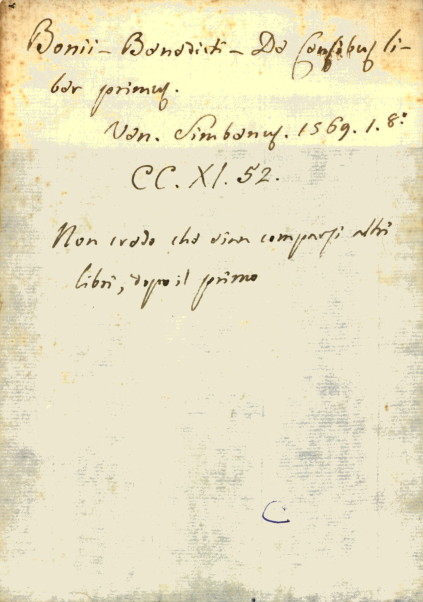 Bonii - Benedicti - De Censibus li-
ber primus.
Ven. Simbenus. 1569. 1. 8.°
CC. XI. 52.
Non credo che sian comparsi altri
libri, dopo il primo
C